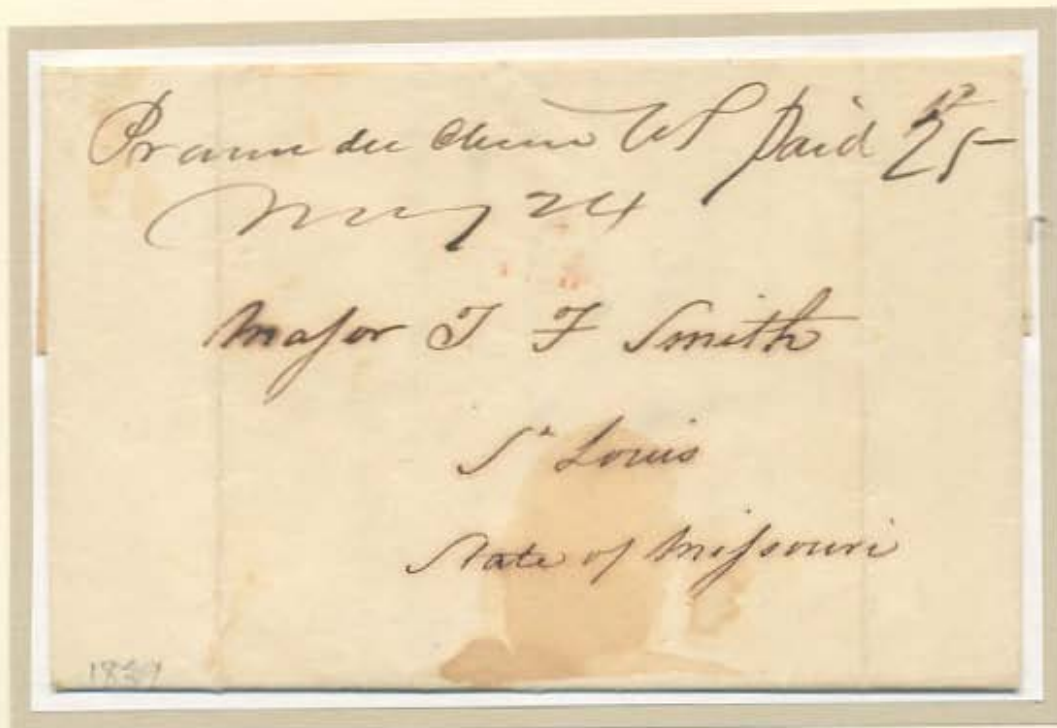 Prairie du Chien WT Paid 25
May 24
Major T F Smith
St Louis
State of Missouri